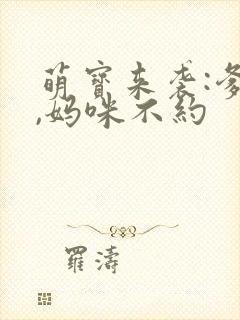 萌寶来袭:爹
,妈咪不約
羅濤